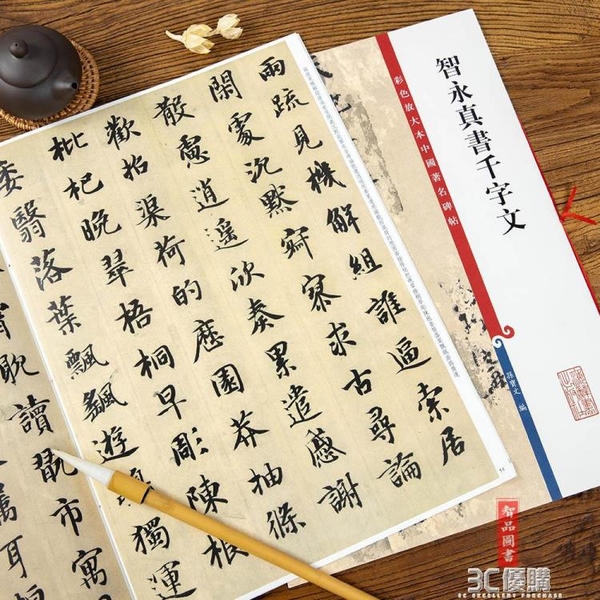 兩疏見機解組誰逼索居
閑處沉默寂寥求古尋論
散慮逍遙欣奏累遣慼謝
歡招渠荷的歷園莽抽條
枇杷晚翠梧桐早彫陳根
委翳落葉飄颻遊獨運
耽讀翫市寓
屬耳垣
彩色放大本中國著名碑帖
智永真書千字文
孫寶文 編
智品圖書
3C優購
3C EXCELLENT PURCHASE